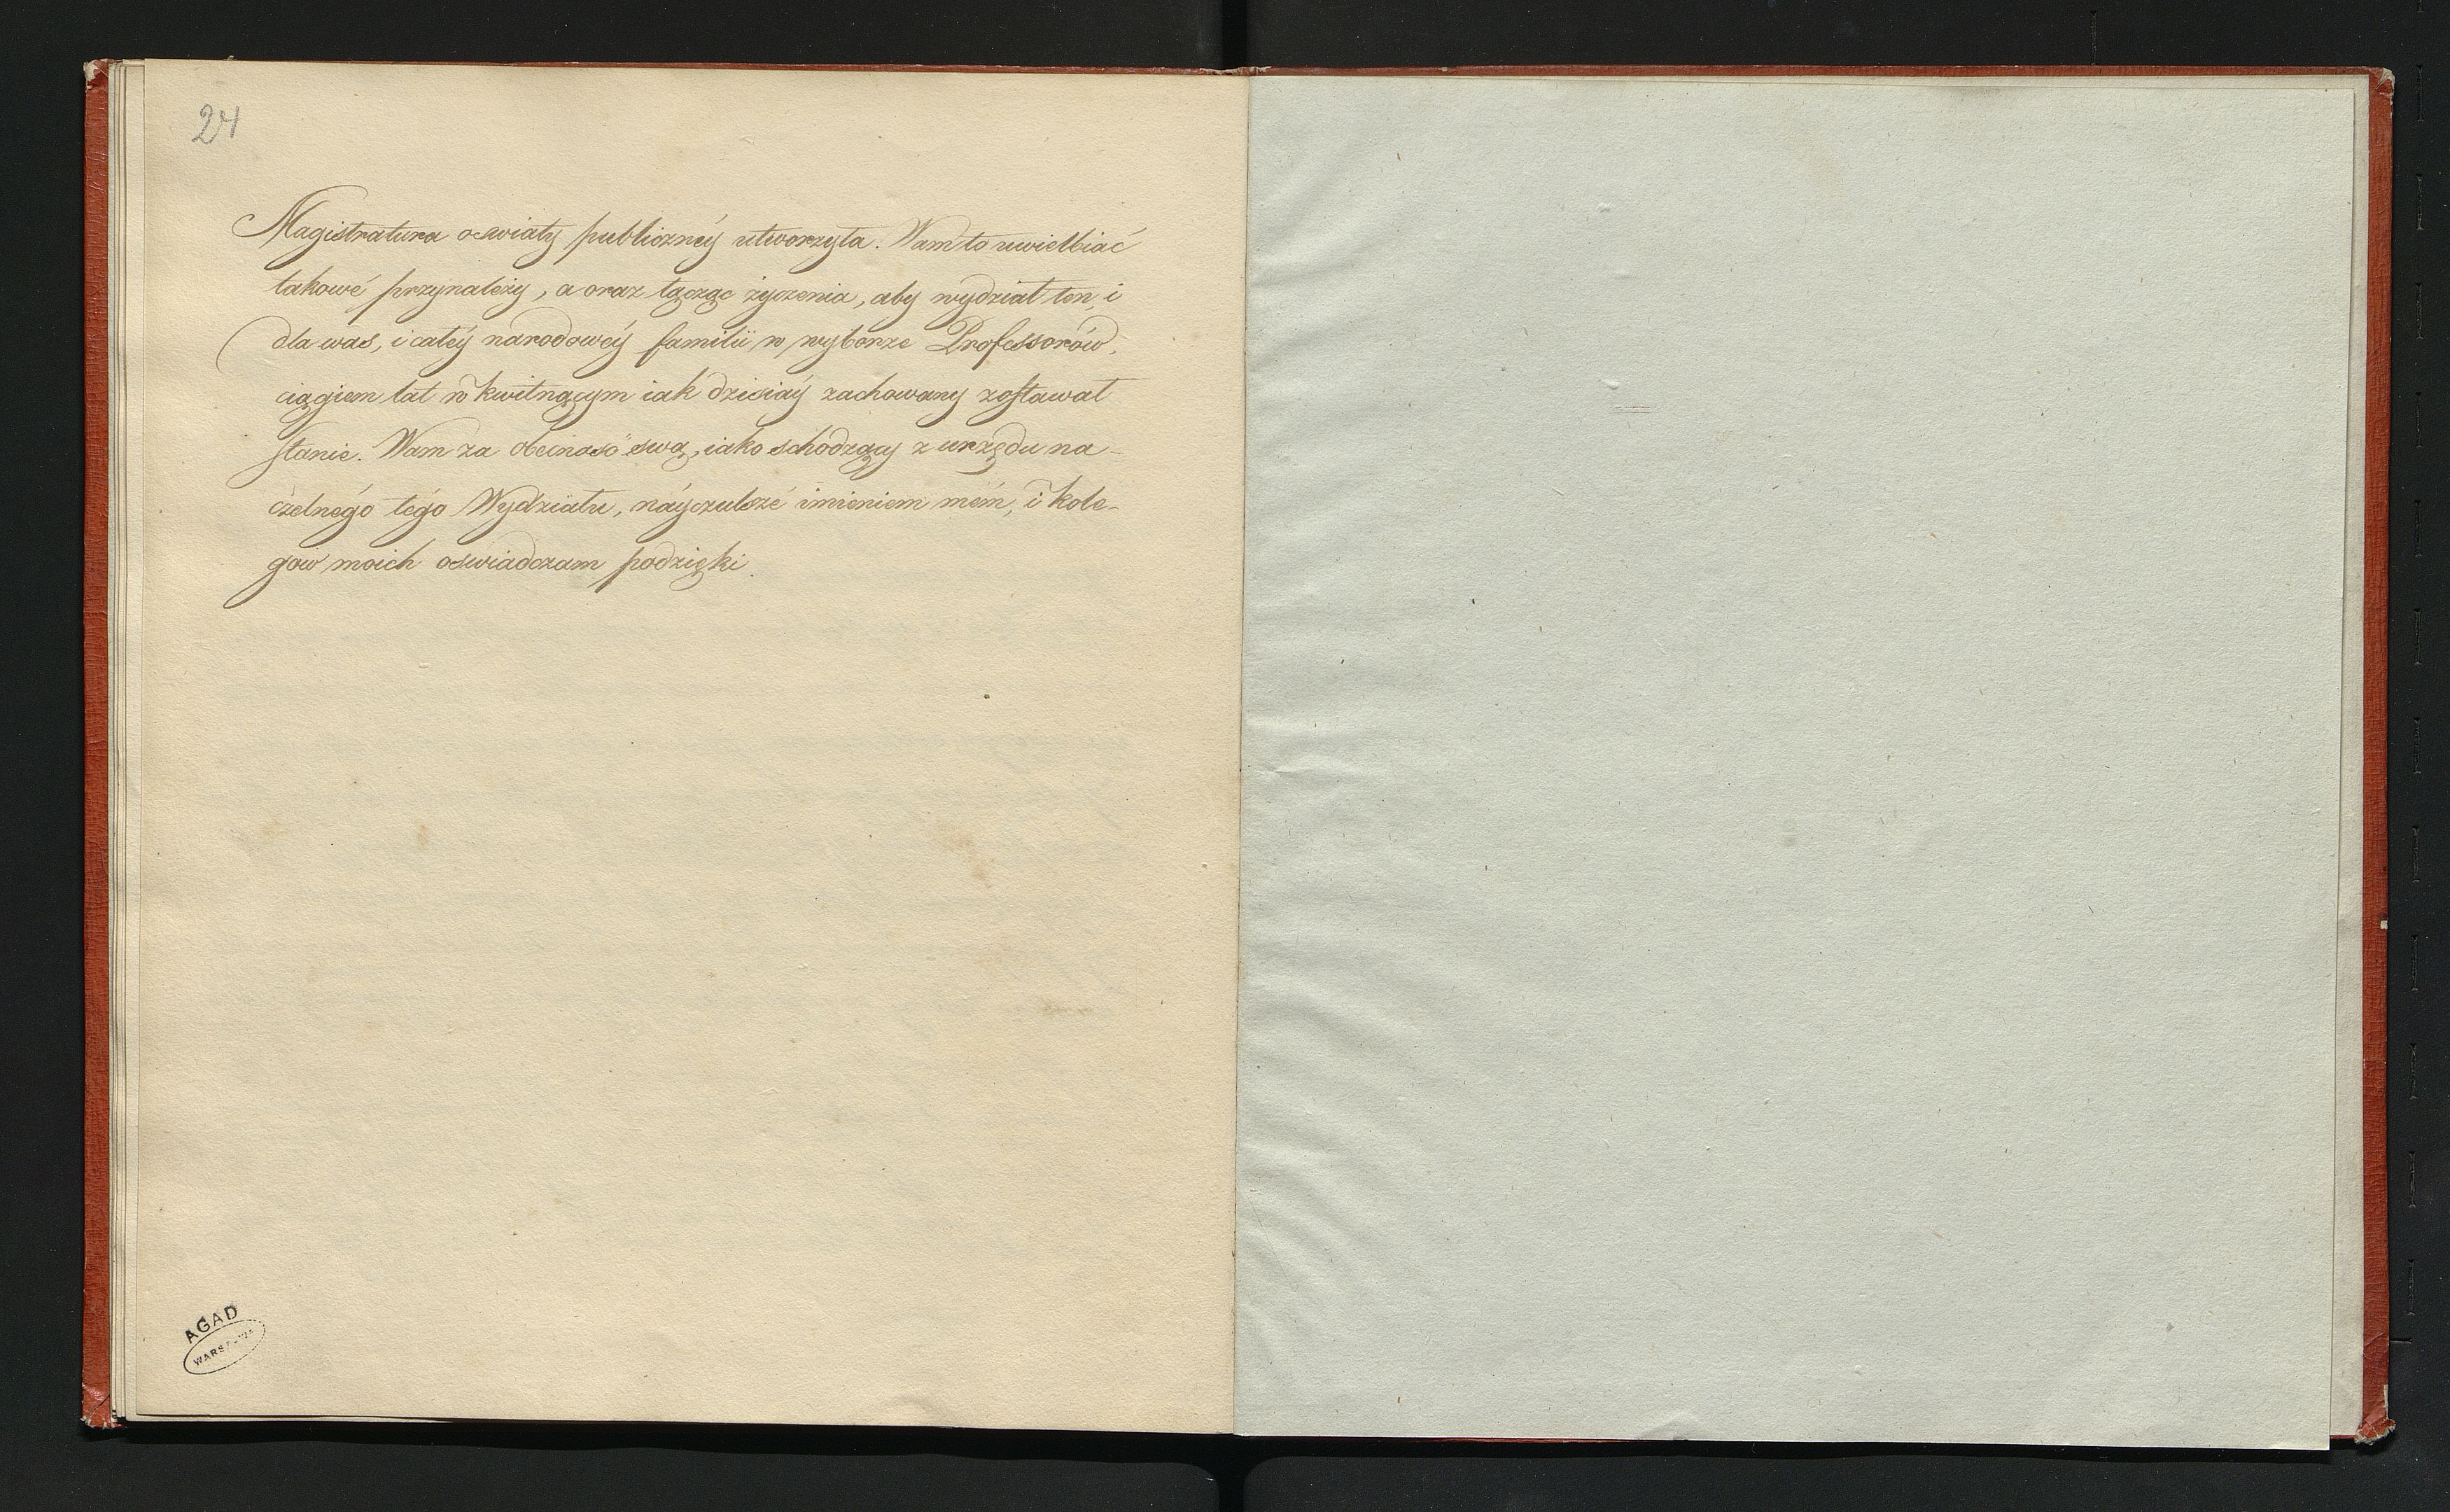 24
Magistratura oswiaty publicznéy utworzyła. Wam to uwielbiać
takowé przynależy, a oraz łącząc życzenia, aby wydział ten, i
dla was, i całéy narodowéy familii w wyborze Professorów,
ciągiem lat w kwitnącym iak dzisiáy zachowany zostawał
stanie. Wam za obecność swą, iako schodzący z urzędu na-
czelnégo tégo Wydziału, náyczulszé imieniem mém, i kole-
gów moich oswiadczam podzięki.
AGAD
WARSZAWA